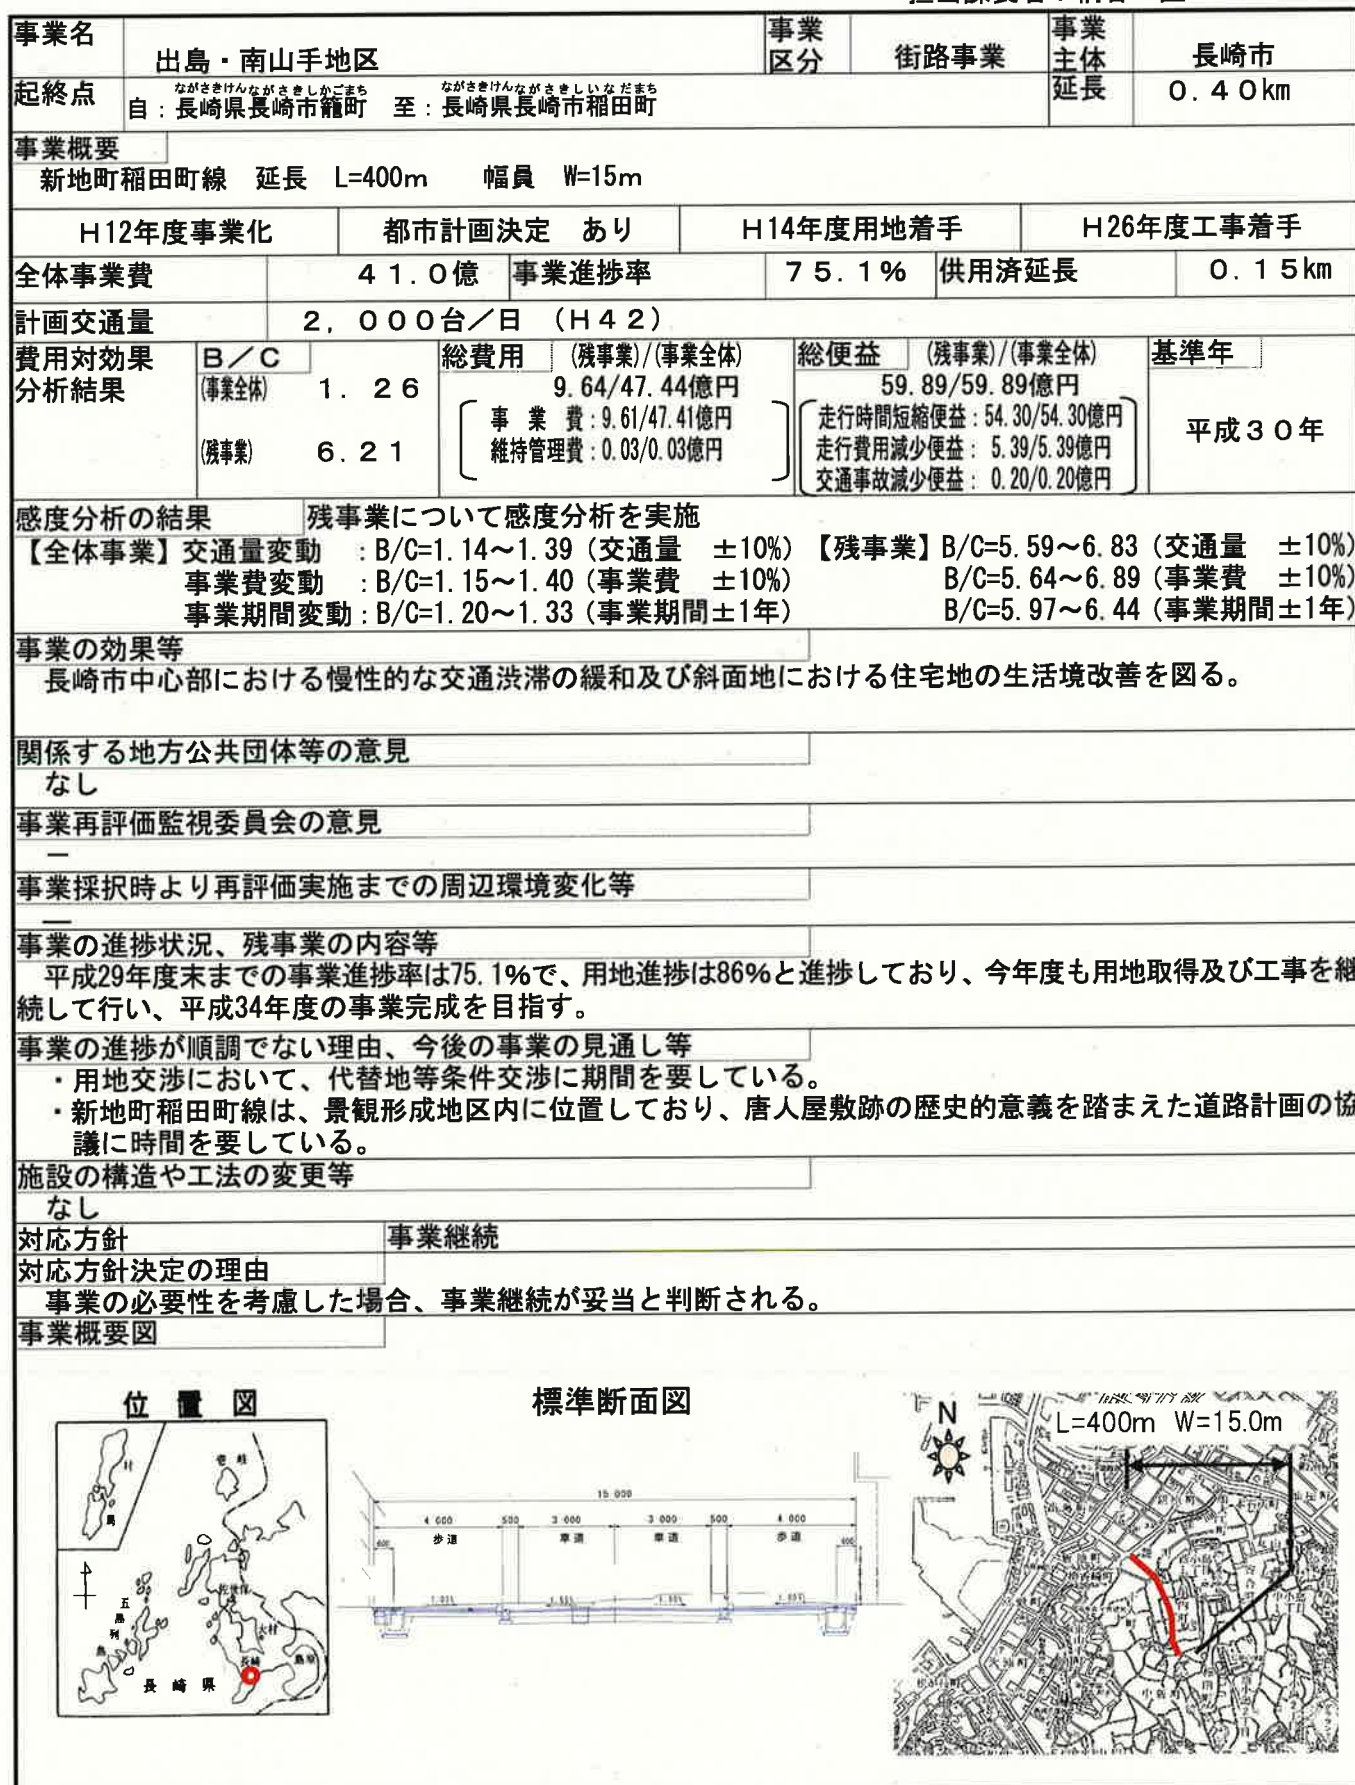 事業名 出島・南山手地区 事業区分 街路事業 事業主体 長崎市
ながさきけんながさきしかごまち ながさきけんながさきしいなだまち
起終点 自：長崎県長崎市籠町 至：長崎県長崎市稲田町 延長 0.40km
事業概要
新地町稲田町線 延長 L=400m 幅員 W=15m
H12年度事業化 都市計画決定 あり H14年度用地着手 H26年度工事着手
全体事業費 41.0億 事業進捗率 75.1% 供用済延長 0.15km
計画交通量 2,000台／日 (H42)
費用対効果 B／C 総費用 (残事業)/(事業全体) 総便益 (残事業)/(事業全体) 基準年
分析結果 (事業全体) 1.26 9.64/47.44億円 59.89/59.89億円
事業費：9.61/47.41億円 走行時間短縮便益：54.30/54.30億円 平成30年
(残事業) 6.21 維持管理費：0.03/0.03億円 走行費用減少便益：5.39/5.39億円
交通事故減少便益：0.20/0.20億円
感度分析の結果 残事業について感度分析を実施
【全体事業】交通量変動 ：B/C=1.14～1.39（交通量 ±10%）【残事業】B/C=5.59～6.83（交通量 ±10%）
事業費変動 ：B/C=1.15～1.40（事業費 ±10%） B/C=5.64～6.89（事業費 ±10%）
事業期間変動：B/C=1.20～1.33（事業期間±1年） B/C=5.97～6.44（事業期間±1年）
事業の効果等
長崎市中心部における慢性的な交通渋滞の緩和及び斜面地における住宅地の生活境改善を図る。
関係する地方公共団体等の意見
なし
事業再評価監視委員会の意見
－
事業採択時より再評価実施までの周辺環境変化等
－
事業の進捗状況、残事業の内容等
平成29年度末までの事業進捗率は75.1%で、用地進捗は86%と進捗しており、今年度も用地取得及び工事を継
続して行い、平成34年度の事業完成を目指す。
事業の進捗が順調でない理由、今後の事業の見通し等
・用地交渉において、代替地等条件交渉に期間を要している。
・新地町稲田町線は、景観形成地区内に位置しており、唐人屋敷跡の歴史的意義を踏まえた道路計画の協
議に時間を要している。
施設の構造や工法の変更等
なし
対応方針 事業継続
対応方針決定の理由
事業の必要性を考慮した場合、事業継続が妥当と判断される。
事業概要図
位置図
標準断面図
N
L=400m W=15.0m
対馬
壱岐
佐世保
五島列島
大村
長崎
島原
長崎県
15 000
4 000 500 3 000 3 000 500 4 000
歩道 車道 車道 歩道
600 600